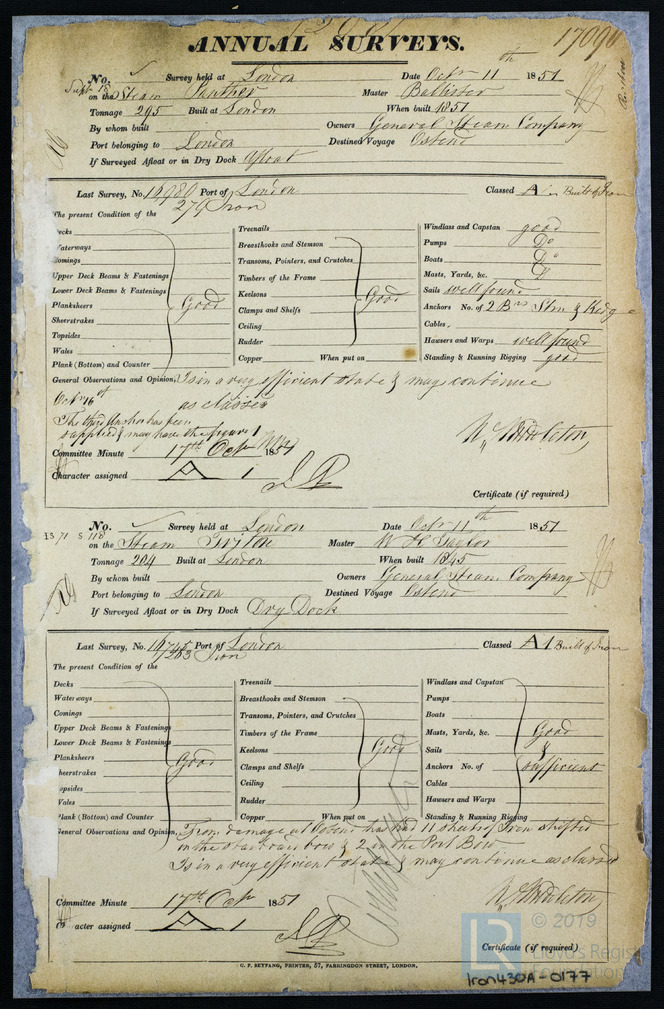 17090
ANNUAL SURVEYS.
No. ✓ Survey held at London Date Octr 11th 1851
on the Steam Panther Master Ballister
Tonnage 295 Built at London When built 1851
By whom built Owners General Steam Company
Port belonging to London Destined Voyage Ostend
If Surveyed Afloat or in Dry Dock Afloat
Last Survey, No. 16980 Port of London Classed A1 Built of Iron
276 Iron
The present Condition of the
Decks
Waterways
Comings
Upper Deck Beams & Fastenings
Lower Deck Beams & Fastenings
Planksheers Good
Sheerstrakes
Topsides
Wales
Plank (Bottom) and Counter
Treenails
Breasthooks and Stemson
Transoms, Pointers, and Crutches
Timbers of the Frame
Keelsons Good
Clamps and Shelfs
Ceiling
Rudder
Copper When put on
Windlass and Capstan good
Pumps Do
Boats Do
Masts, Yards, &c. Do
Sails well found
Anchors No. of 2 Brs Stm & Kedge
Cables,
Hawsers and Warps well found
Standing & Running Rigging good
General Observations and Opinion, Is in a very efficient state & may continue
as classed
Octr 16th
The third Anchor has been
supplied & may have the figure 1
W. Middleton
Committee Minute 17th Octr 1851
Character assigned A 1
Certificate (if required)
No. ✓ Survey held at London Date Octr 11th 1851
on the Steam Triton Master W H Taylor
Tonnage 204 Built at London When built 1845
By whom built Owners General Steam Company
Port belonging to London Destined Voyage Ostend
If Surveyed Afloat or in Dry Dock Dry Dock
Last Survey, No. 16745 Port of London Classed A1 Built of Iron
263 Iron
The present Condition of the
Decks
Waterways
Comings
Upper Deck Beams & Fastenings
Lower Deck Beams & Fastenings
Planksheers Good
heerstrakes
opsides
Vales
Plank (Bottom) and Counter
Treenails
Breasthooks and Stemson
Transoms, Pointers, and Crutches
Timbers of the Frame
Keelsons Good
Clamps and Shelfs
Ceiling
Rudder
Copper When put on
Windlass and Capstan
Pumps
Boats
Masts, Yards, &c. Good
Sails &
Anchors No. of sufficient
Cables
Hawsers and Warps
Standing & Running Rigging
General Observations and Opinion, From damage at Ostend has had 11 sheets of Iron shifted
on the starboard bow & 2 in the Port Bow
Is in a very efficient state & may continue as classed
W. Middleton
Committee Minute 17th Octr 1851
Character assigned A 1
Certificate (if required)
G. F. SEYFANG, PRINTER, 57, FARRINGDON STREET, LONDON.
LR © 2019
Lloyd's Register
Foundation
Iron430A-0177